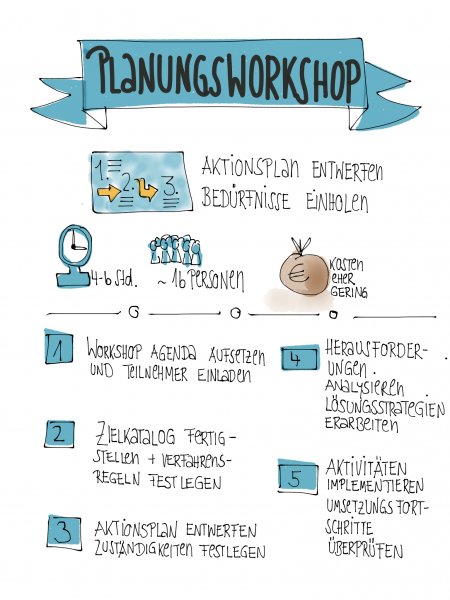 PLANUNGSWORKSHOP
1.
2.
3.
AKTIONSPLAN ENTWERFEN
BEDÜRFNISSE EINHOLEN
4-6 Std.
~ 16 PERSONEN
€
KOSTEN
EHER
GERING
1
WORKSHOP AGENDA AUFSETZEN
UND TEILNEHMER EINLADEN
2
ZIELKATALOG FERTIG-
STELLEN + VERFAHRENS-
REGELN FESTLEGEN
3
AKTIONSPLAN ENTWERFEN
ZUSTÄNDIGKEITEN FESTLEGEN
4
HERAUSFORDER-
UNGEN
ANALYSIEREN
LÖSUNGSSTRATEGIEN
ERARBEITEN
5
AKTIVITÄTEN
IMPLEMENTIEREN
UMSETZUNGSFORT-
SCHRITTE
ÜBERPRÜFEN